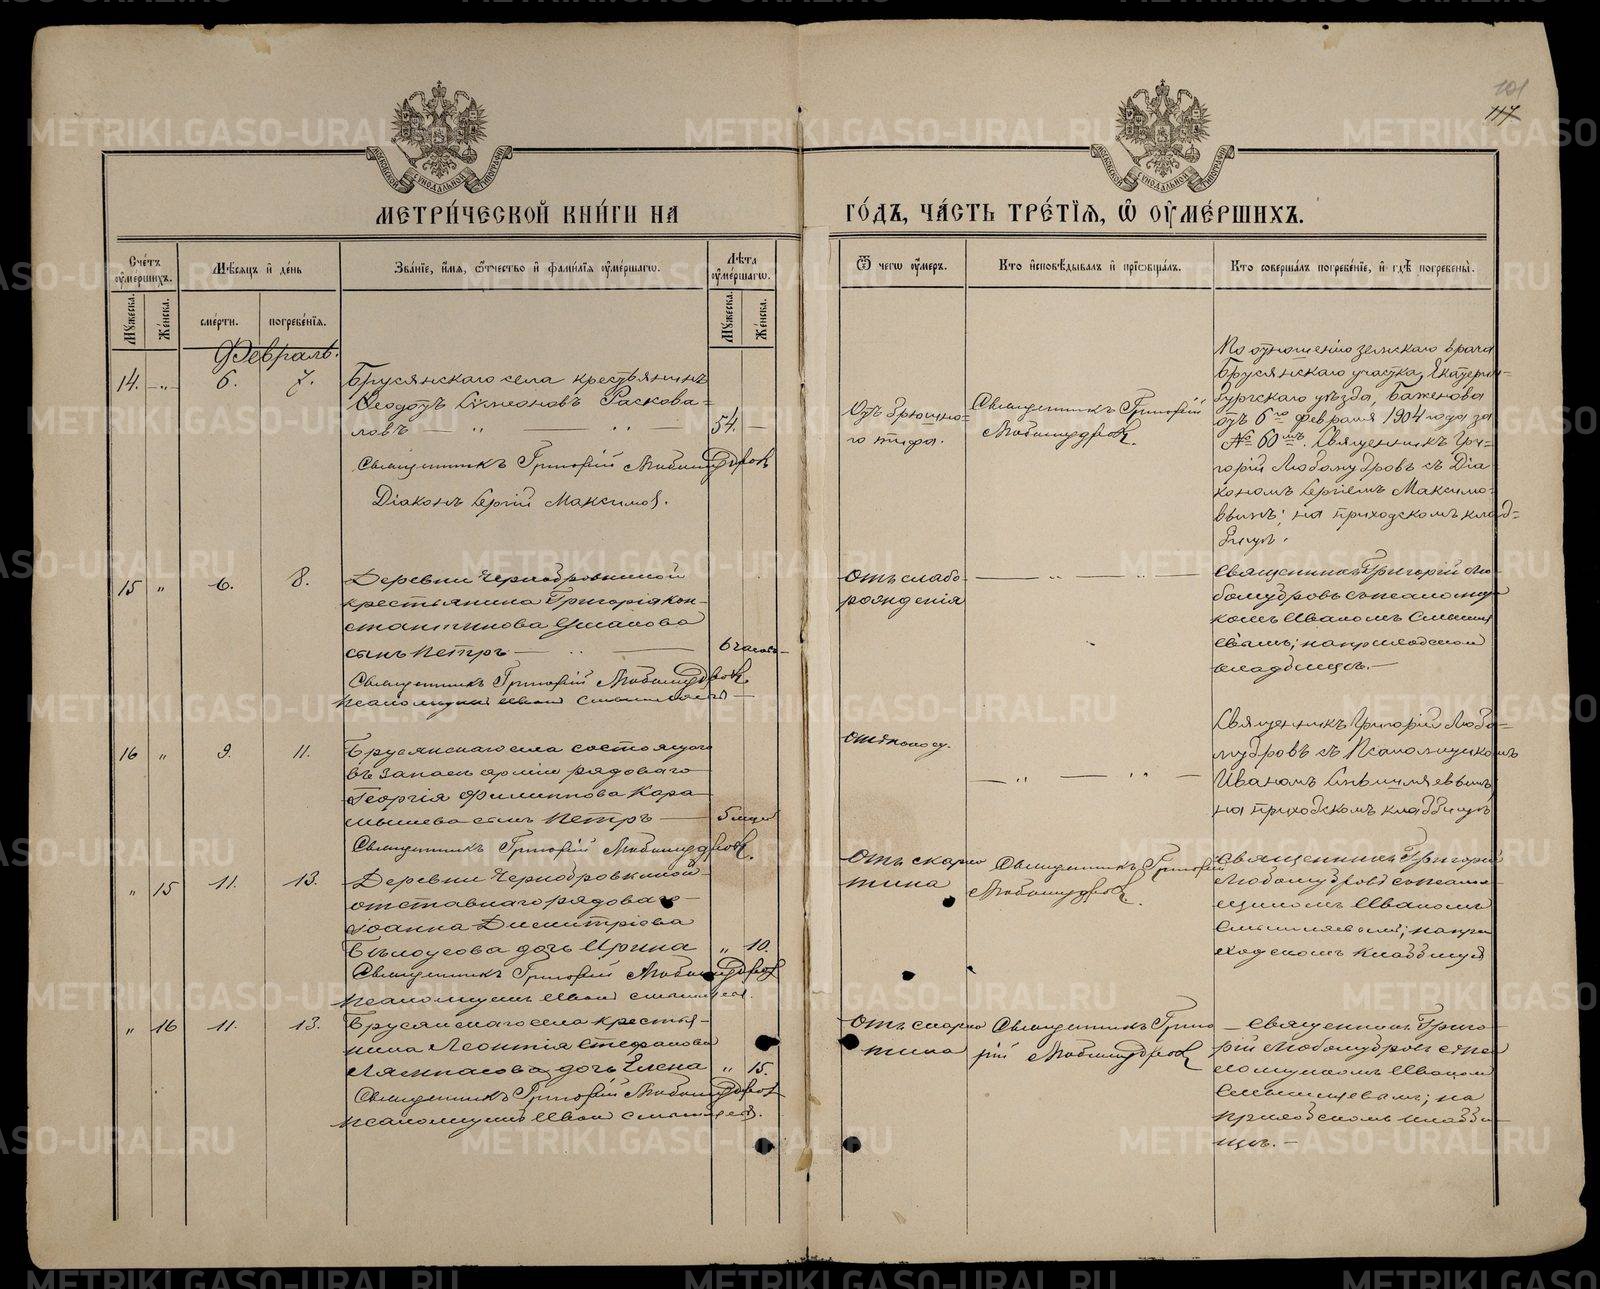 101
117
МЕТРИ́ЧЕСКОЙ КНИ́ГИ НА
ГО́ДЪ, ЧА́СТЬ ТРЕ́ТІѦ, Ѿ ОУ҆МЕ́РШИХЪ.
Счетъ оумершихъ.
Мужеска.
Женска.
Мѣсяцъ и день
смерти.
погребенія.
Званіе, имя, отчество и фамилія оумершагѡ.
Лѣта оумершагѡ.
Мужеска.
Женска.
Ѿ чегѡ оумеръ.
Кто исповѣдывалъ и пріобщалъ.
Кто совершалъ погребеніе, и гдѣ погребены.
Февраль.
14. 6. 7.
Брусянскаго села крестьянинъ
Ѳеодотъ Симеоновъ Раскова-
ловъ
54.
Священникъ Григорій Любомудровъ
Діаконъ Сергій Максимов.
Отъ брюшна-
го тифа.
Священникъ Григорій
Любомудровъ.
По отношенію земскаго врача
Брусянскаго участка, Екатерин-
бургскаго уѣзда, Баженова
отъ 6го февраля 1904 года за
№ 60мъ. Священникъ Гри-
горій Любомудровъ съ Діа-
кономъ Сергіемъ Максимо-
вымъ; на приходскомъ клад-
бищѣ.
15 6. 8.
Деревни Чернобровкиной
крестьянина Григорія Кон-
стантинова Ушакова
сынъ Петръ
6 часовъ
Священникъ Григорій Любомудровъ.
Псаломщикъ Иван
отъ слабо-
рожденія
Священникъ Григорій Лю-
бомудровъ съ псаломщи-
комъ Иваномъ
на приходскомъ
кладбищѣ.
16 9. 11.
Брусянскаго села состоящаго
въ запасѣ арміи рядоваго
Георгія Филиппова Кара-
мышева сынъ Петръ
5 мцей
Священникъ Григорій Любомудровъ.
отъ поносу.
Священникъ Григорій Любо-
мудровъ съ Псаломщикомъ
Иваномъ
на приходскомъ кладбищѣ
15 11. 13.
Деревни Чернобровкиной
отставнаго рядоваго
Іоанна Димитріева
Бѣлоусова дочь Ирина
10.
Священникъ Григорій Любомудровъ
псаломщикъ Иван
отъ скарла-
тина
Священникъ Григорій
Любомудровъ.
Священникъ Григорій
Любомудровъ съ псалом-
щикомъ Иваномъ
на при-
ходскомъ кладбищѣ
16 11. 13.
Брусянскаго села крестья-
нина Леонтія Стефанова
дочь Елена
15.
Священникъ Григорій Любомудровъ
псаломщикъ Иван
отъ скарла-
тина
Священникъ Григо-
рій Любомудровъ
Священникъ Григо-
рій Любомудровъ съ пса-
ломщикомъ Иваномъ
на
приходскомъ кладби-
щѣ.
METRIKI.GASO-URAL.RU